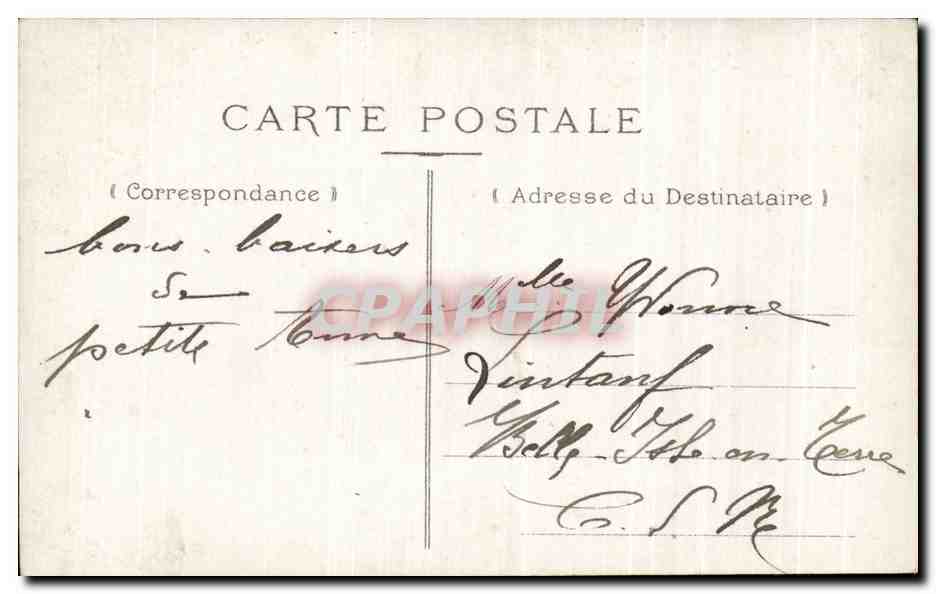 CARTE POSTALE
( Correspondance )
bons baisers
de
petite
( Adresse du Destinataire )
Mlle Yvonne
Lintanf
Belle-Isle-en-Terre
C. d N
CPAPHIL